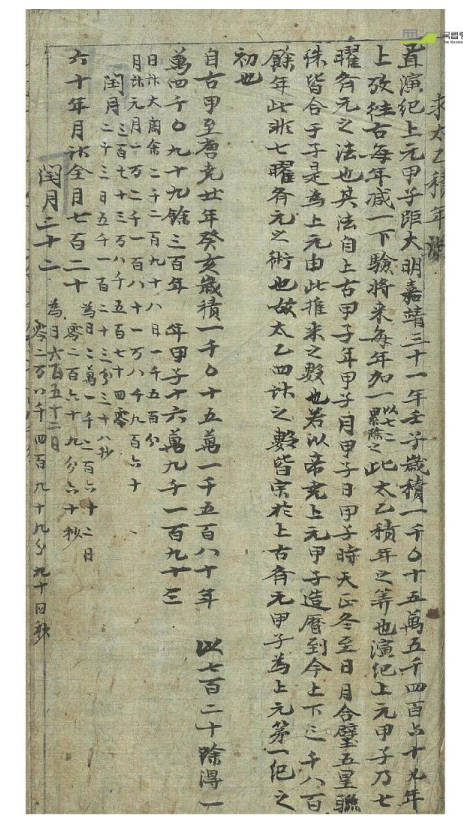 求太乙積年
置演紀上元甲子距大明嘉靖三十一年壬子歲積一千〇十五萬五千四百六十九年
上攷往古每年減一下驗將來每年加一以七二累除之此太乙積年之筭也演紀上元甲子乃七
曜齊元之法也其法自上古甲子年甲子月甲子日甲子時天正冬至日月合璧五星聯
珠皆合于子是為上元由此推來之數也若以帝堯上元甲子造曆到今上下三千八百
餘年此非七曜齊元之術也故太乙四計之數皆宗於上古齊元甲子為上元第一紀之
初也
自古甲至唐堯廿年癸亥歲積一千〇十五萬一千五百八十年 以七百二十除得一
萬四千〇九十九餘三百年 年甲子十六萬九千一百九十三
日計大閏余二千二百九十八日一千五百分
月計元月一万二千一百八十一万八千九百六十
閏月三百七十三万八千五百七十四零
二千三日五千一百二十三分三十八秒
六十年月計全月七百二十 為日二萬一千二百六十二日
零二百六十九分六十秒
閏月二十二 為日六百五十二日
零二万八千四百九十九分九十日秒
국립